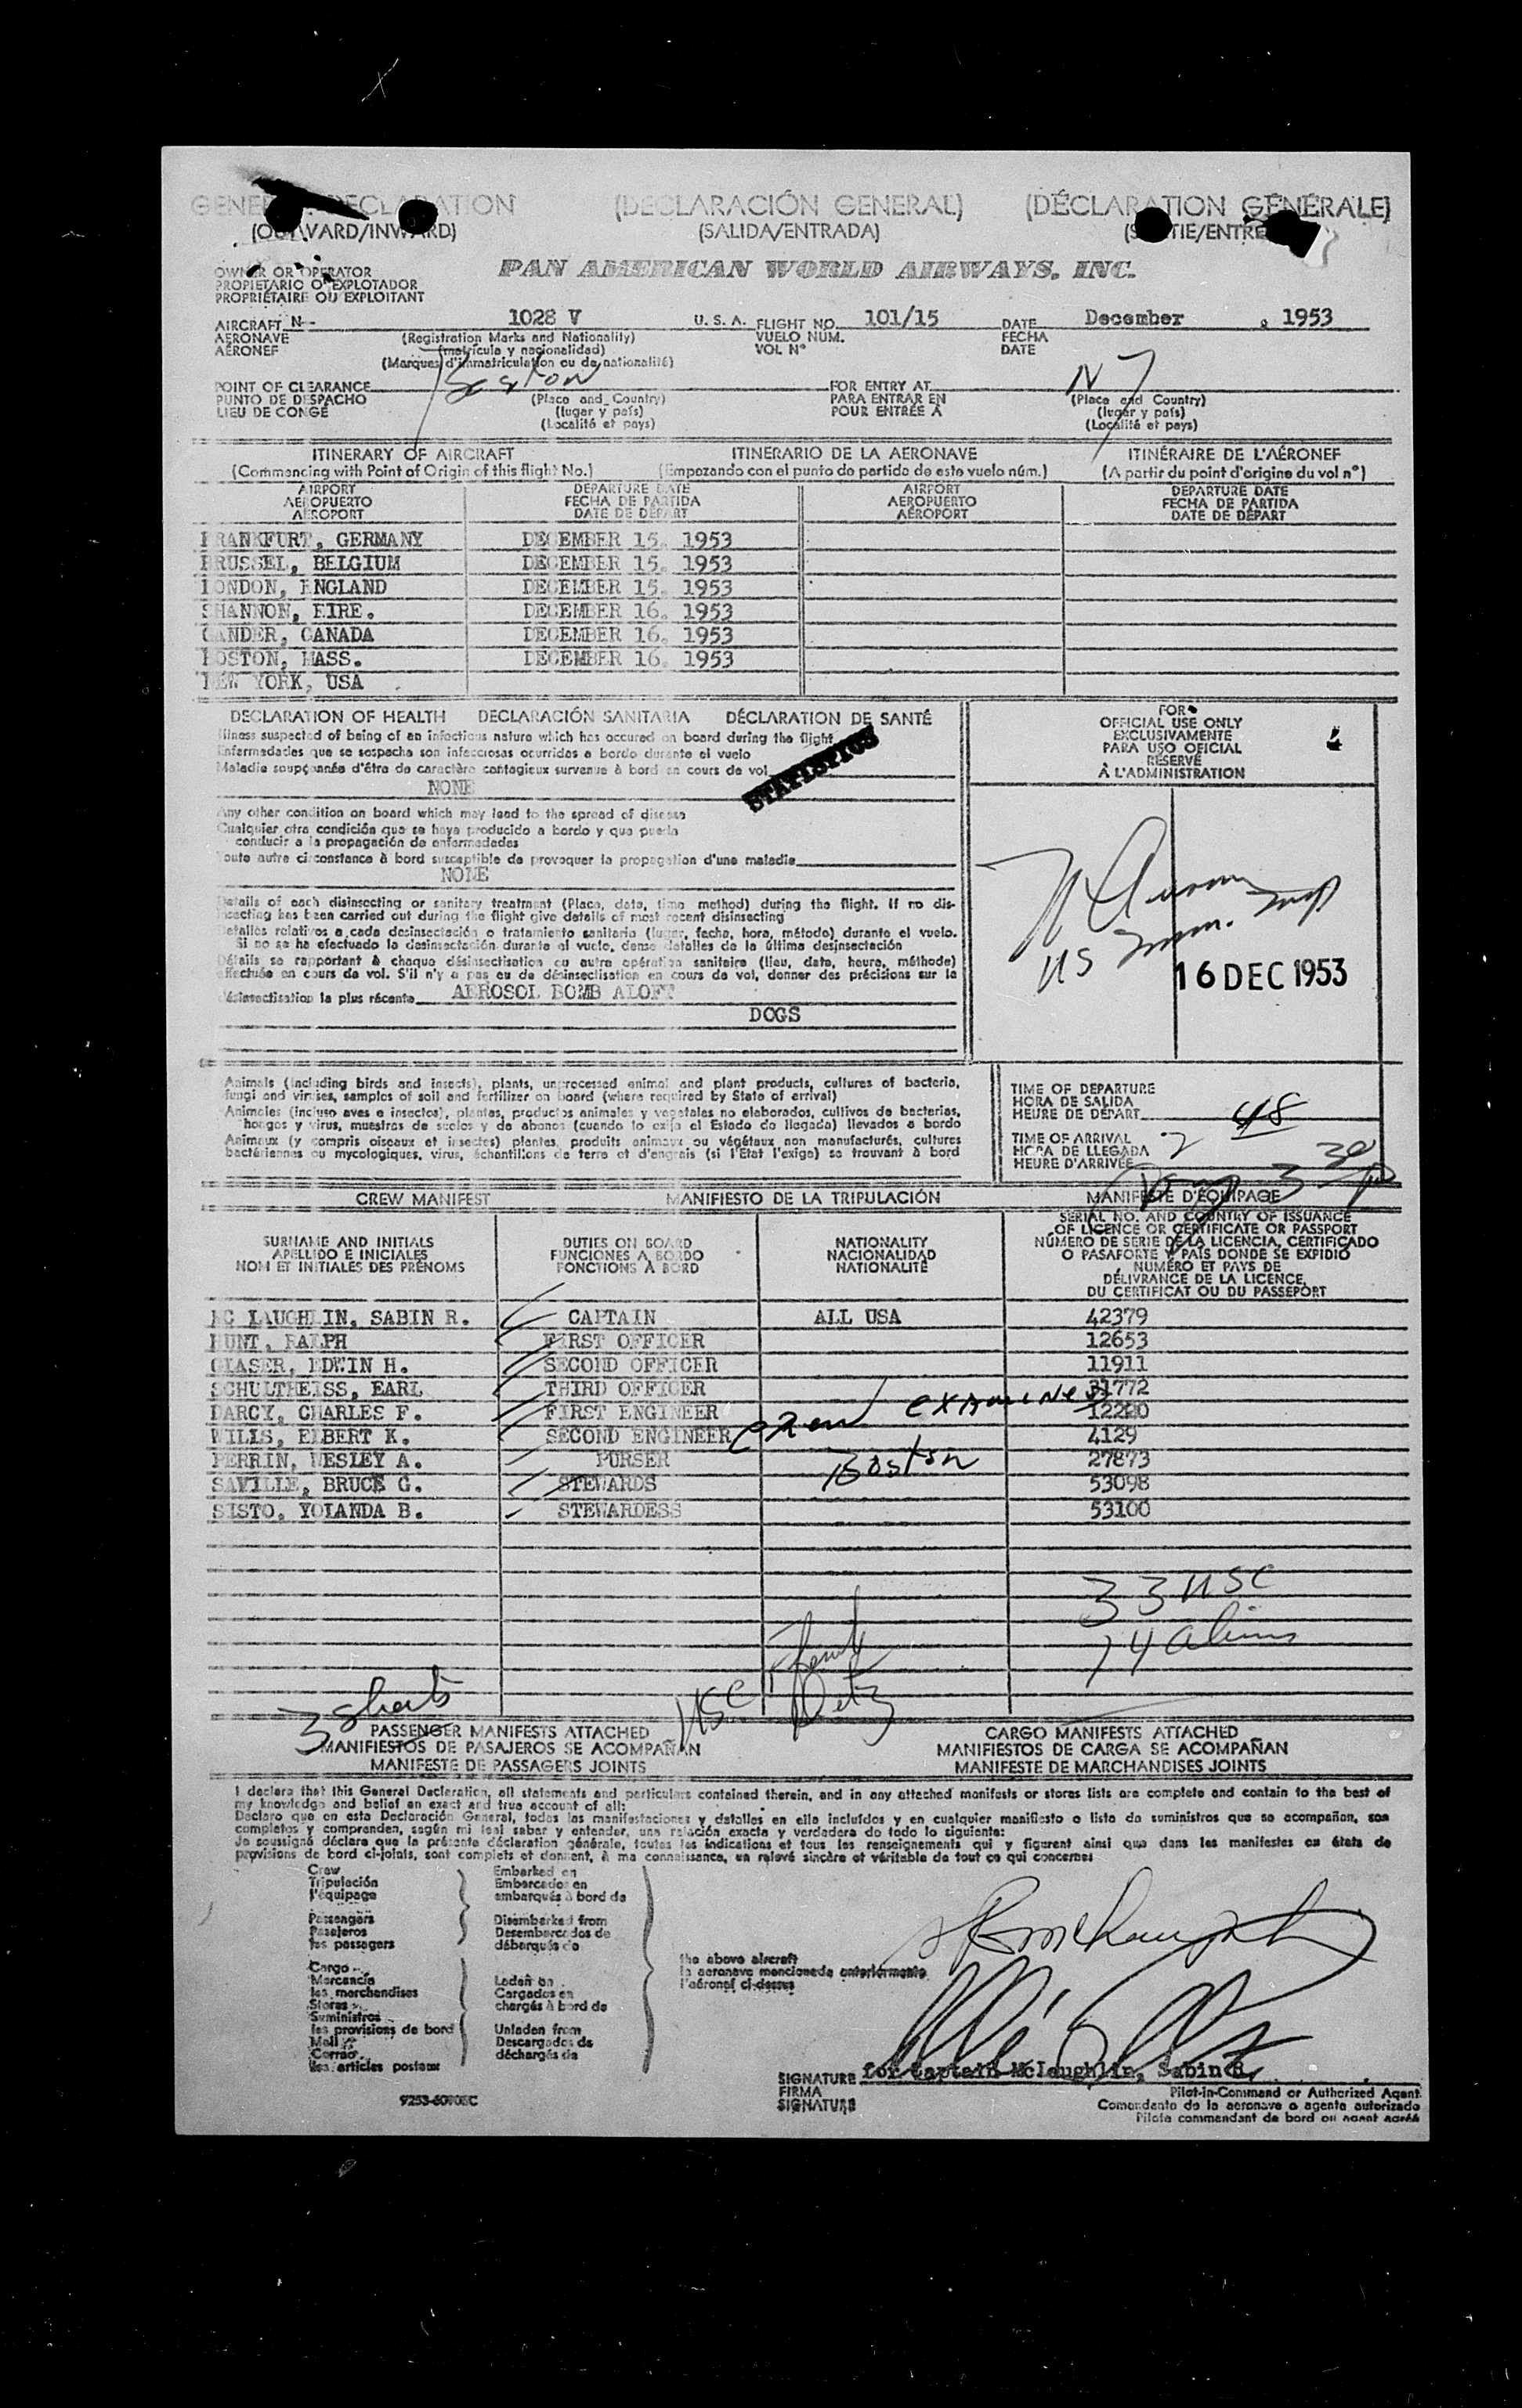 GENERAL DECLARATION (DECLARACIÓN GENERAL) (DÉCLARATION GÉNÉRALE)
(OUTWARD/INWARD) (SALIDA/ENTRADA) (SORTIE/ENTRÉE)
OWNER OR OPERATOR PAN AMERICAN WORLD AIRWAYS, INC.
PROPIETARIO O EXPLOTADOR
PROPRIÉTAIRE OU EXPLOITANT
AIRCRAFT N- 1028 V U. S. A. FLIGHT NO. 101/15 DATE December , 1953
AERONAVE (Registration Marks and Nationality) VUELO NÚM. FECHA
AÉRONEF (matrícula y nacionalidad) VOL Nº DATE
(Marques d'immatriculation ou de nationalité)
POINT OF CLEARANCE Boston FOR ENTRY AT NY
PUNTO DE DESPACHO (Place and Country) PARA ENTRAR EN (Place and Country)
LIEU DE CONGÉ (lugar y país) POUR ENTRÉE À (lugar y país)
(Localité et pays) (Localité et pays)
ITINERARY OF AIRCRAFT ITINERARIO DE LA AERONAVE ITINÉRAIRE DE L'AÉRONEF
(Commencing with Point of Origin of this flight No.) (Empezando con el punto de partida de este vuelo núm.) (A partir du point d'origine du vol nº)
AIRPORT DEPARTURE DATE AIRPORT DEPARTURE DATE
AEROPUERTO FECHA DE PARTIDA AEROPUERTO FECHA DE PARTIDA
AÉROPORT DATE DE DÉPART AÉROPORT DATE DE DÉPART
FRANKFURT, GERMANY DECEMBER 15. 1953
BRUSSEL, BELGIUM DECEMBER 15. 1953
LONDON, ENGLAND DECEMBER 15. 1953
SHANNON, EIRE. DECEMBER 16. 1953
GANDER, CANADA DECEMBER 16. 1953
BOSTON, MASS. DECEMBER 16. 1953
NEW YORK, USA
DECLARATION OF HEALTH DECLARACIÓN SANITARIA DÉCLARATION DE SANTÉ
Illness suspected of being of an infectious nature which has occured on board during the flight
Enfermedades que se sospecha son infecciosas ocurridas a bordo durante el vuelo
Maladie soupçonnée d'être de caractère contagieux survenue à bord en cours de vol
STATISTICS
NONE
FOR
OFFICIAL USE ONLY
EXCLUSIVAMENTE
PARA USO OFICIAL
RÉSERVÉ
À L'ADMINISTRATION
Any other condition on board which may lead to the spread of disease
Cualquier otra condición que se haya producido a bordo y que pueda
conducir a la propagación de enfermedades
Toute autre circonstance à bord susceptible de provoquer la propagation d'une maladie
NONE
Details of each disinsecting or sanitary treatment (Place, date, time method) during the flight. If no dis-
insecting has been carried out during the flight give details of most recent disinsecting
Detalles relativos a cada desinsectación o tratamiento sanitario (lugar, fecha, hora, método) durante el vuelo.
Si no se ha efectuado la desinsectación durante el vuelo, dense detalles de la última desinsectación
Détails se rapportant à chaque désinsectisation ou autre opération sanitaire (lieu, date, heure, méthode)
effectuée en cours de vol. S'il n'y a pas eu de désinsectisation en cours de vol, donner des précisions sur la
désinsectisation la plus récente AEROSOL BOMB ALOFT
DOGS
US Imm. Insp
16 DEC 1953
Animals (including birds and insects), plants, unprocessed animal and plant products, cultures of bacteria,
fungi and viruses, samples of soil and fertilizer on board (where required by State of arrival)
Animales (incluso aves e insectos), plantas, productos animales y vegetales no elaborados, cultivos de bacterias,
hongos y virus, muestras de suelos y de abonos (cuando lo exija el Estado de llegada) llevados a bordo
Animaux (y compris oiseaux et insectes) plantes, produits animaux ou végétaux non manufacturés, cultures
bactériennes ou mycologiques, virus, échantillons de terre et d'engrais (si l'État l'exige) se trouvant à bord
TIME OF DEPARTURE
HORA DE SALIDA
HEURE DE DÉPART
TIME OF ARRIVAL
HORA DE LLEGADA
HEURE D'ARRIVÉE
CREW MANIFEST MANIFIESTO DE LA TRIPULACIÓN MANIFESTE D'ÉQUIPAGE
SURNAME AND INITIALS DUTIES ON BOARD NATIONALITY SERIAL NO. AND COUNTRY OF ISSUANCE
APELLIDO E INICIALES FUNCIONES A BORDO NACIONALIDAD OF LICENCE OR CERTIFICATE OR PASSPORT
NOM ET INITIALES DES PRÉNOMS FONCTIONS À BORD NATIONALITÉ NÚMERO DE SERIE DE LA LICENCIA, CERTIFICADO
O PASAPORTE Y PAÍS DONDE SE EXPIDIÓ
NUMÉRO ET PAYS DE
DÉLIVRANCE DE LA LICENCE,
DU CERTIFICAT OU DU PASSEPORT
MC LAUGHLIN, SABIN R. CAPTAIN ALL USA 42379
HUNT, RALPH FIRST OFFICER 12653
GLASER, EDWIN H. SECOND OFFICER 11911
SCHULTHEISS, EARL THIRD OFFICER 31772
DARCY, CHARLES F. FIRST ENGINEER 12280
WILLS, ELBERT K. SECOND ENGINEER 4129
PERRIN, WESLEY A. PURSER 27873
SAVILLE, BRUCE G. STEWARDS 53098
SISTO, YOLANDA B. STEWARDESS 53100
crew examined
Boston
33 USC
14 aliens
3 sheets USC
PASSENGER MANIFESTS ATTACHED CARGO MANIFESTS ATTACHED
MANIFIESTOS DE PASAJEROS SE ACOMPAÑAN MANIFIESTOS DE CARGA SE ACOMPAÑAN
MANIFESTE DE PASSAGERS JOINTS MANIFESTE DE MARCHANDISES JOINTS
I declare that this General Declaration, all statements and particulars contained therein, and in any attached manifests or stores lists are complete and contain to the best of
my knowledge and belief an exact and true account of all:
Declaro que en esta Declaración General, todas las manifestaciones y detalles en ella incluídos y en cualquier manifiesto o lista de suministros que se acompañan, son
completos y comprenden, según mi leal saber y entender, una relación exacta y verdadera de todo lo siguiente:
Je soussigné déclare que la présente déclaration générale, toutes les indications et tous les renseignements qui y figurent ainsi que dans les manifestes ou états de
provisions de bord ci-joints, sont complets et donnent, à ma connaissance, un relevé sincère et véritable de tout ce qui concerne:
Crew Embarked on
Tripulación Embarcados en
l'équipage embarqués à bord de
Passengers Disembarked from
Pasajeros Desembarcados de
les passagers débarqués de
the above aircraft
la aeronave mencionada anteriormente
l'aéronef ci-dessus
Cargo
Mercancía Laden on
les marchandises Cargados en
Stores chargés à bord de
Suministros
les provisions de bord Unladen from
Mail Descargados de
Correo déchargés de
les articles postaux
SIGNATURE for Captain Mclaughlin, Sabin R.
FIRMA Pilot-in-Command or Authorized Agent
SIGNATURE Comandante de la aeronave o agente autorizado
Pilote commandant de bord ou agent agréé